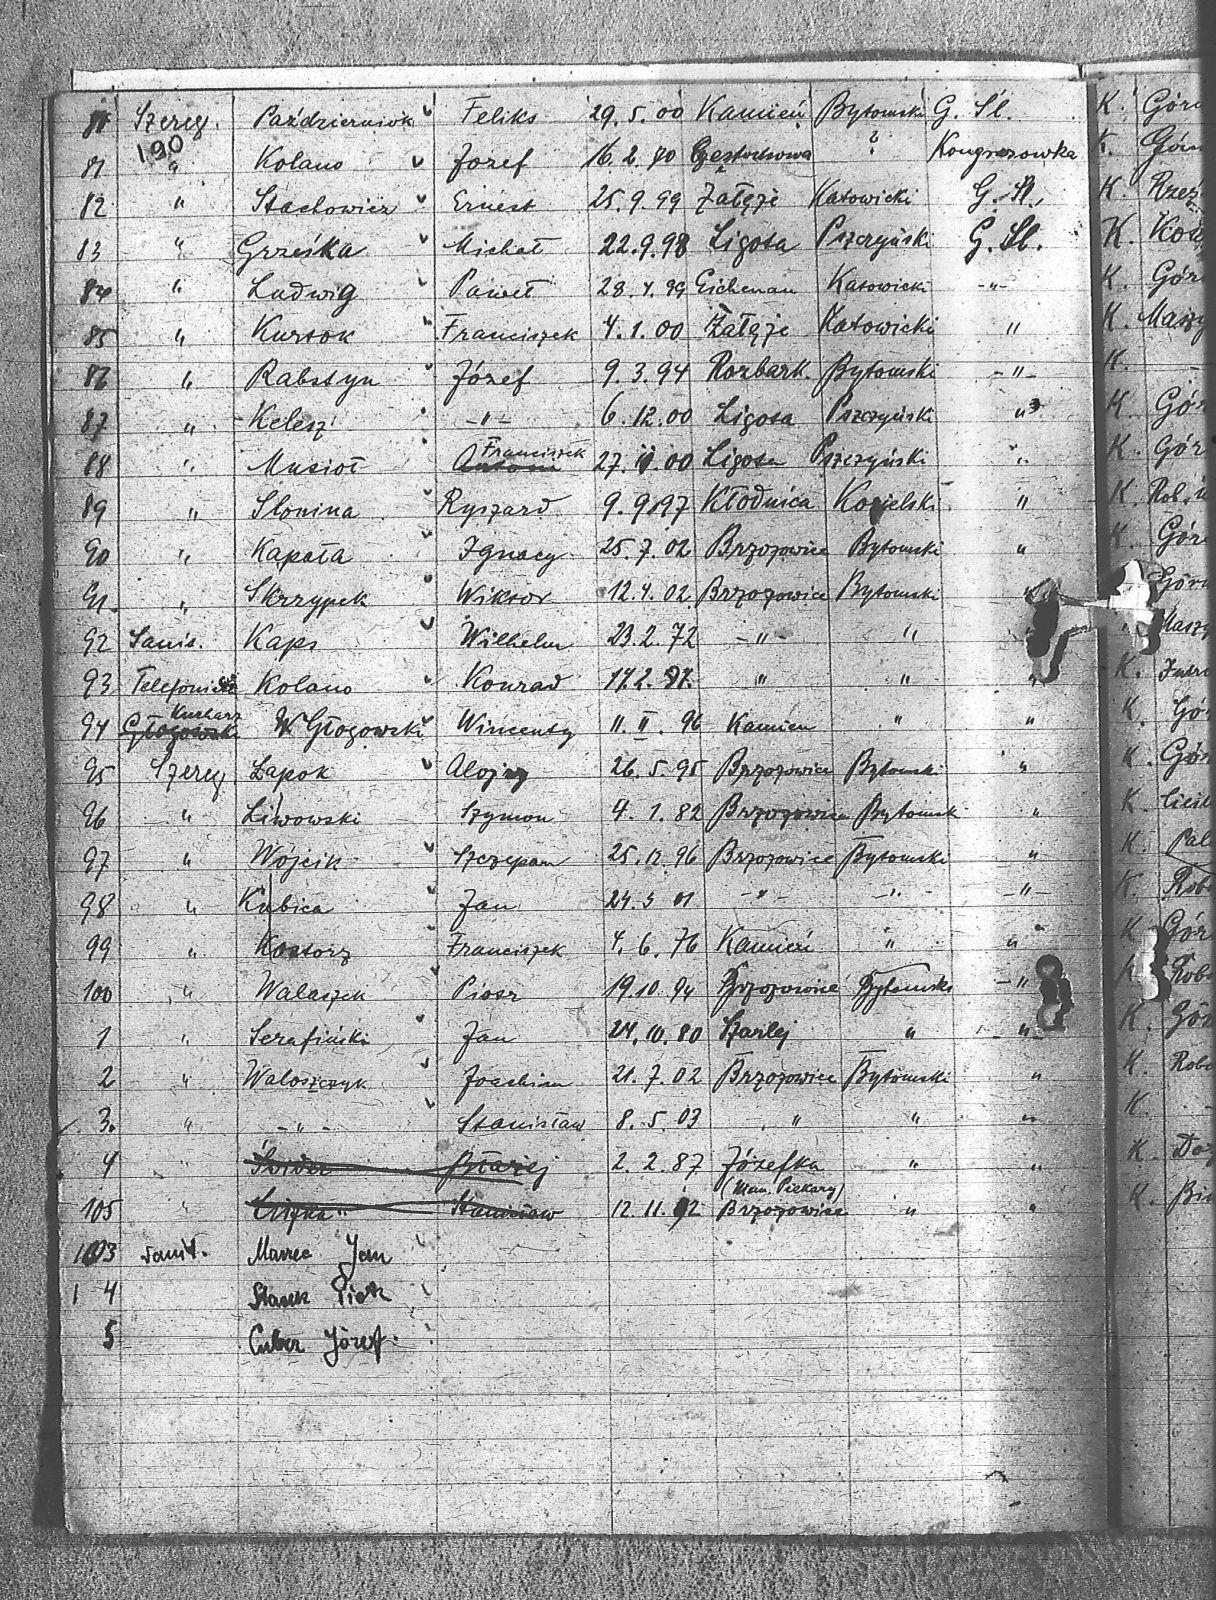 81 Szereg. Październiok Feliks 29.5.00 Kamień Bytomski G. Śl. K. Gór
190
81 " Kolano Jozef 16.2.70 Częstochowa ? Kongresowka K. Gór
82 " Stachowicz Ernest 25.9.99 Załęże Katowicki G. Śl. K. Rzeź
83 " Grześka Michał 22.9.98 Ligota Pszczyński G. Śl. K.
84 " Ludwig Paweł 28.4.99 Eichenau Katowicki -"- K. Gór
85 " Kurtok Franciszek 4.1.00 Załęże Katowicki " K. Maszy
86 " Rabstyn Józef 9.3.94 Rozbark Bytomski -"- K.
87 " Kelesz -"- 6.12.00 Ligota Pszczyński " K. Gór
88 " Musioł Franciszek 27. .00 Ligota Pszczyński " K. Gór
89 " Słonina Ryszard 9.9.97 Kłodnica Kozielski " K. Rob.
90 " Kapała Ignacy 25.7.02 Brzozowice Bytomski " K. Gór
91. " Skrzypek Wiktor 12.4.02 Brzozowice Bytomski " Górn
92 Sanit. Kaps Wilhelm 23.2.72 -"- " Maszy
93 Telefonista Kolano Konrad 17.2.97. " " " K.
94 Kucharz Głogowski Wincenty 11.II.96 Kamien " " K. Gór
95 Szereg Łapok Alojzy 26.5.95 Brzozowice Bytomski " K. Gór
96 " Liwowski Szymon 4.1.82 Brzozowice Bytomsk " K. Cieśl
97 " Wójcik Szczepan 25.12.96 Brzozowice Bytomski " K. Pal
98 " Kubica Jan 24.5.01 -"- -"- -"- K. Rob
99 " Kostorz Franciszek 4.6.76 Kamień " " K. Gór
100 " Walaszek Piotr 19.10.94 Brzozowice Bytomski -"- K. Robo
1 " Serafiński Jan 24.10.80 Szarlej " " K. Gór
2 " Waloszczyk Joachim 21.7.02 Brzozowice Bytomski " K. Robo
3. " -"- Stanisław 8.5.03 " " " K.
4 " Świder Błażej 2.2.87 Józefka " " K. Doz
(Man. Piekary)
105 " Stanisław 12.11.92 Brzozowice " " K.
103 sanit. Marzec Jan
1 4 Stasek Piotr
5 Cuber Józef